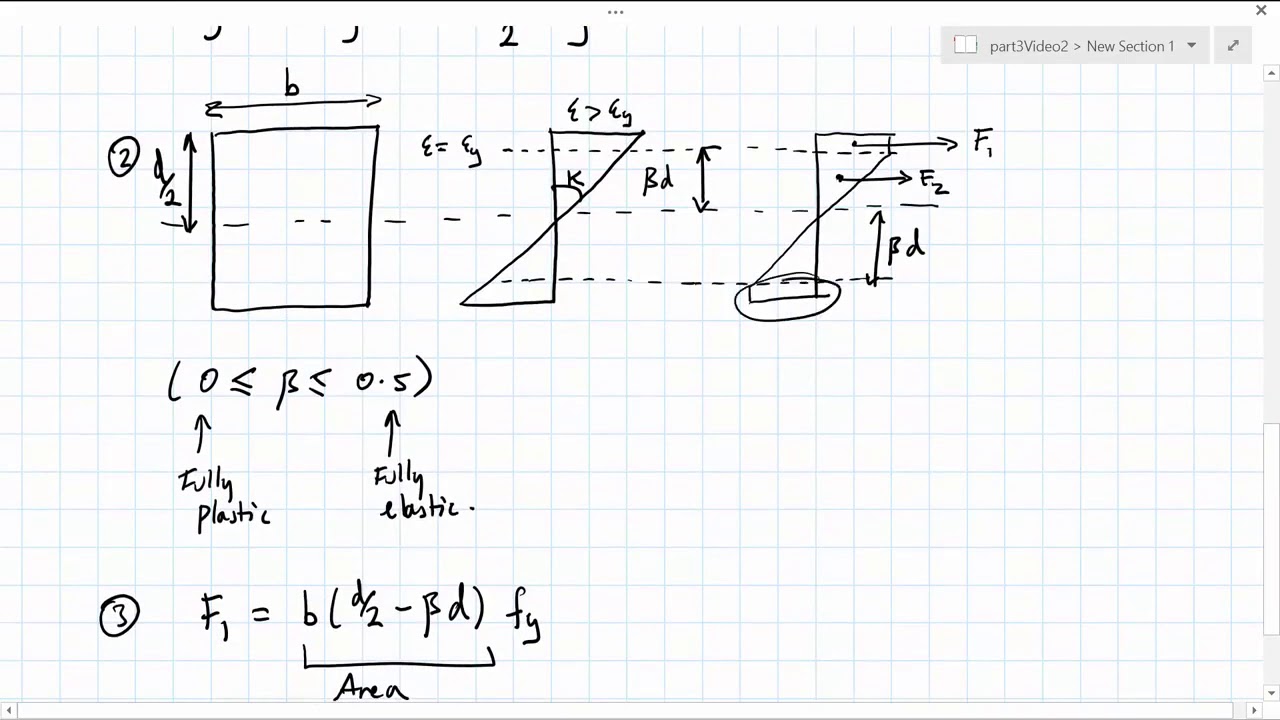 part3Video2 > New Section 1
2
b
②
d/2
ε = εy
ε > εy
K
βd
F₁
F₂
βd
(0 ≤ β ≤ 0.5)
Fully plastic
Fully elastic.
③ F₁ = b(d/2 − βd) fy
Area